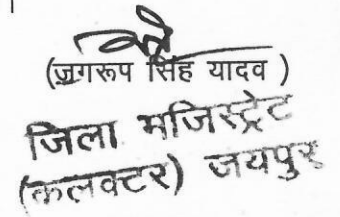 (जगरूप सिंह यादव )
जिला मजिस्ट्रेट
(कलक्टर) जयपुर